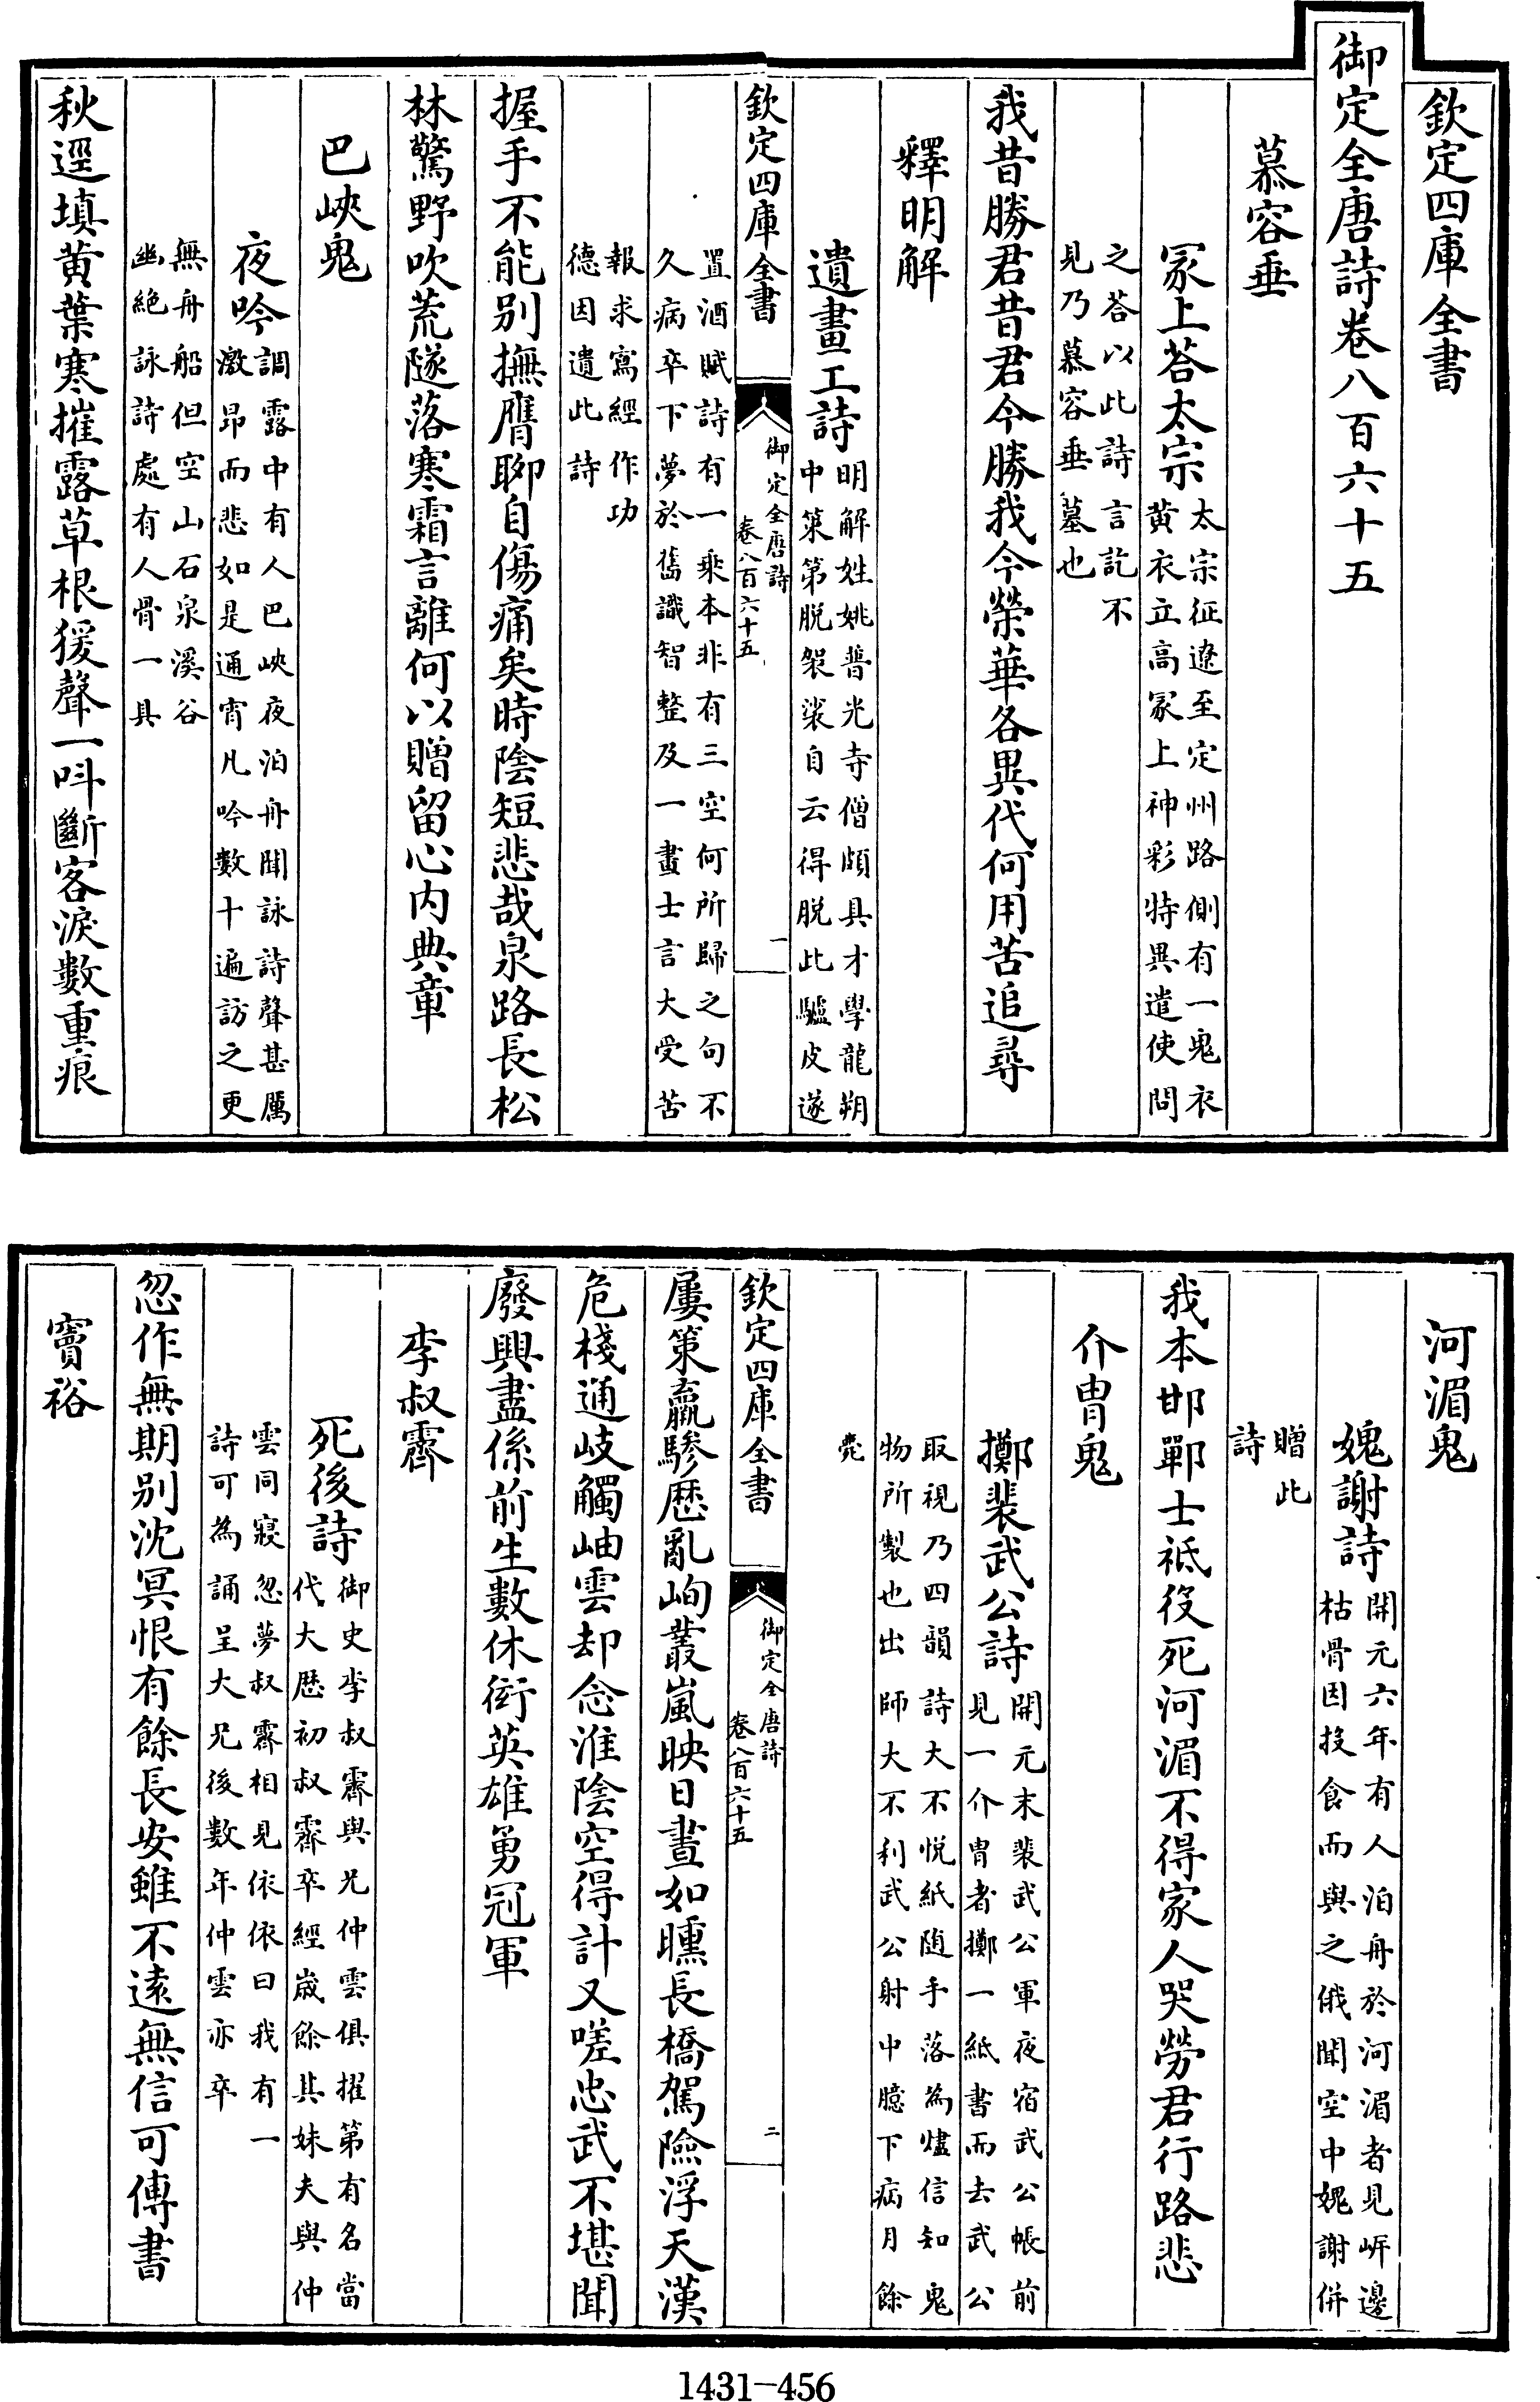 欽定四庫全書
御定全唐詩卷八百六十五
慕容垂
冢上荅太宗太宗征遼至定州路側有一鬼衣
黄衣立高冢上神彩特異遣使問
之荅以此詩言訖不
見乃慕容垂墓也
我昔勝君昔君今勝我今榮華各異代何用苦追尋
釋明解
遺畫工詩明解姓姚普光寺僧頗具才學龍朔
中策第脱袈裟自云得脱此驢皮遂
置酒賦詩有一乘本非有三空何所歸之句不
久病卒下夢於舊識智整及一畫士言大受苦
報求寫經作功
德因遺此詩
握手不能别撫膺聊自傷痛矣時陰短悲哉泉路長松
林驚野吹荒隧落寒霜言離何以贈留心内典章
巴峽鬼
夜吟調露中有人巴峽夜泊舟聞詠詩聲甚厲
激昂而悲如是通宵凡吟數十遍訪之更
無舟船但空山石泉溪谷
幽絶詠詩處有人骨一具
秋逕填黄葉寒摧露草根猨聲一呌斷客淚數重痕
欽定四庫全書
御定全唐詩
卷八百六十五
一
河湄鬼
媿謝詩開元六年有人泊舟於河湄者見岍邊
枯骨因投食而與之俄聞空中媿謝併
贈此
詩
我本邯鄲士祗役死河湄不得家人哭勞君行路悲
介胄鬼
擲裴武公詩開元末裴武公軍夜宿武公帳前
見一介胄者擲一紙書而去武公
取視乃四韻詩大不悦紙随手落為燼信知鬼
物所製也出師大不利武公射中臆下病月餘
薨
屢策羸驂歴亂峋叢嵐映日晝如曛長橋駕險浮天漢
危棧通岐觸岫雲却念淮陰空得計又嗟忠武不堪聞
廢興盡係前生數休衒英雄勇冠軍
李叔霽
死後詩御史李叔霽與兄仲雲俱擢第有名當
代大歴初叔霽卒經嵗餘其妹夫與仲
雲同寢忽夢叔霽相見依依曰我有一
詩可為誦呈大兄後數年仲雲亦卒
忽作無期别沈冥恨有餘長安雖不逺無信可傳書
竇裕
欽定四庫全書
御定全唐詩
卷八百六十五
二
1431-456